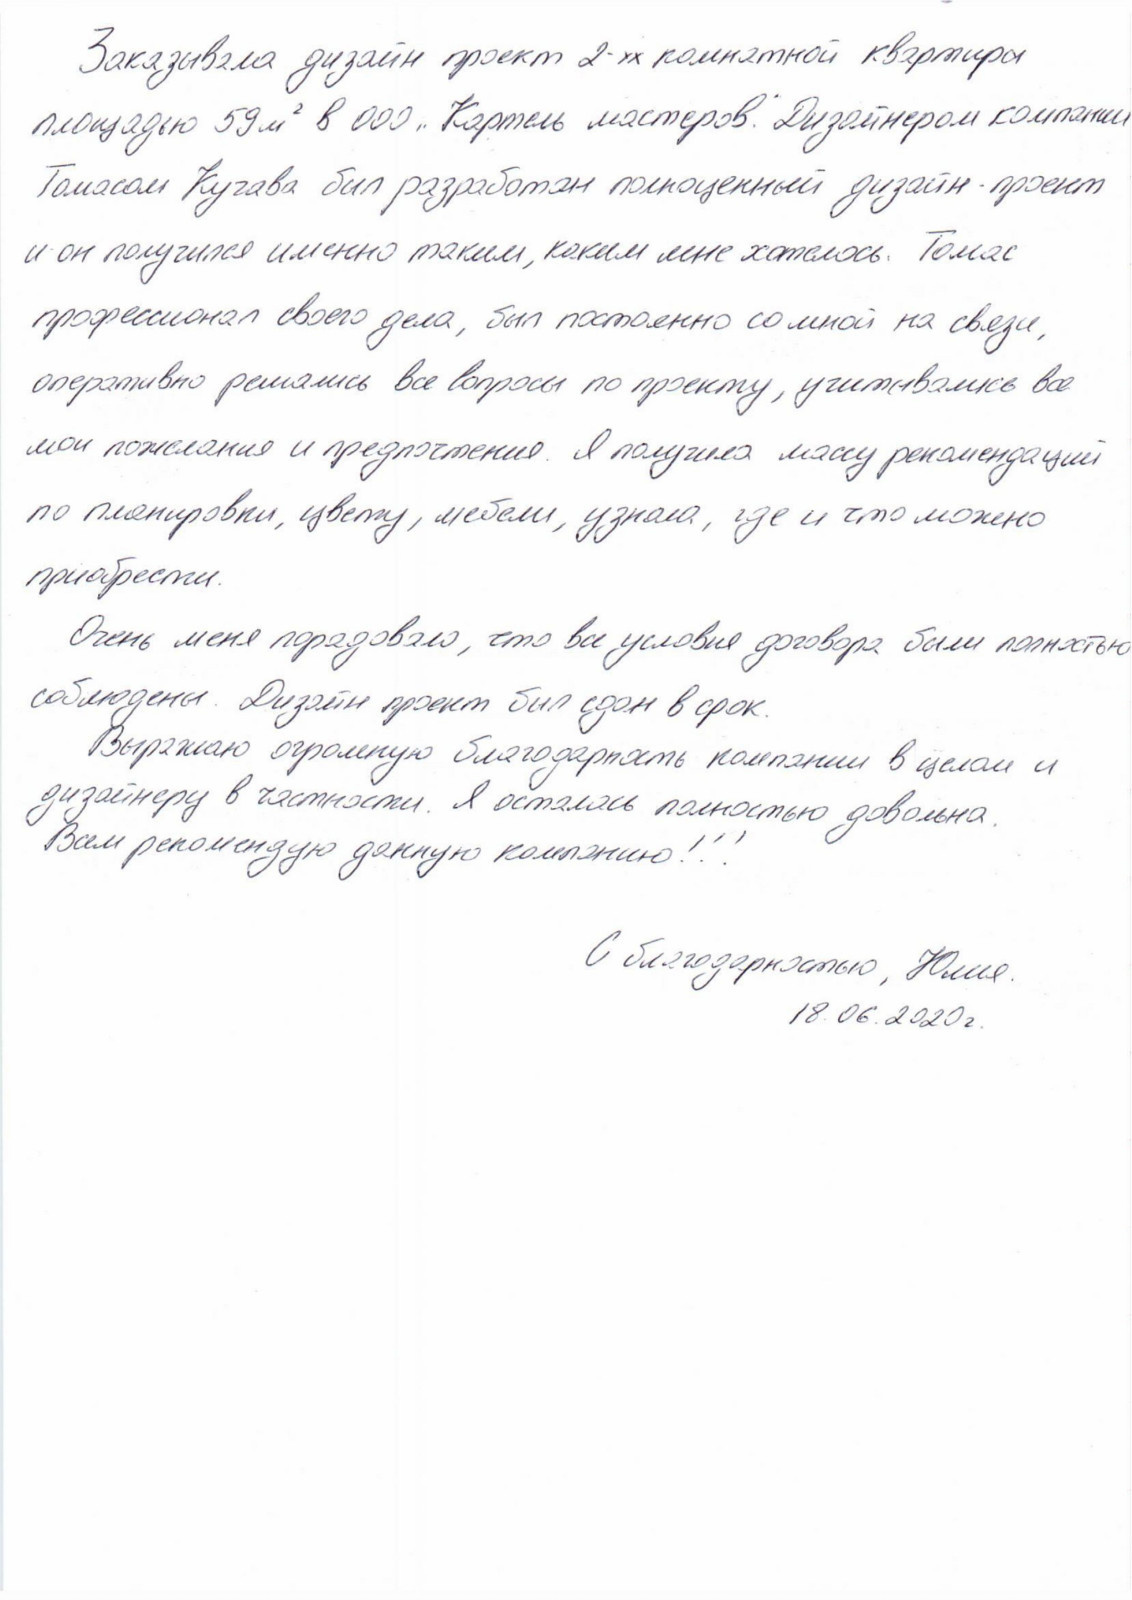 Заказывала дизайн проект 2-хх комнатной квартиры
площадью 59м² в ООО „Картель мастеров". Дизайнером компании
Томасом Кучава был разработан полноценный дизайн-проект
и он получился именно таким, каким мне хотелось. Томас
профессионал своего дела, был постоянно со мной на связи,
оперативно решались все вопросы по проекту, учитывались все
мои пожелания и предпочтения. Я получила массу рекомендаций
по планировки, цвету, мебели, узнала, где и что можно
приобрести.
Очень меня порадовало, что все условия договора были полностью
соблюдены. Дизайн проект был сдан в срок.
Выражаю огромную благодарность компании в целом и
дизайнеру в частности. Я осталась полностью довольна.
Всем рекомендую данную компанию!!!
С благодарностью, Юлия.
18.06.2020г.